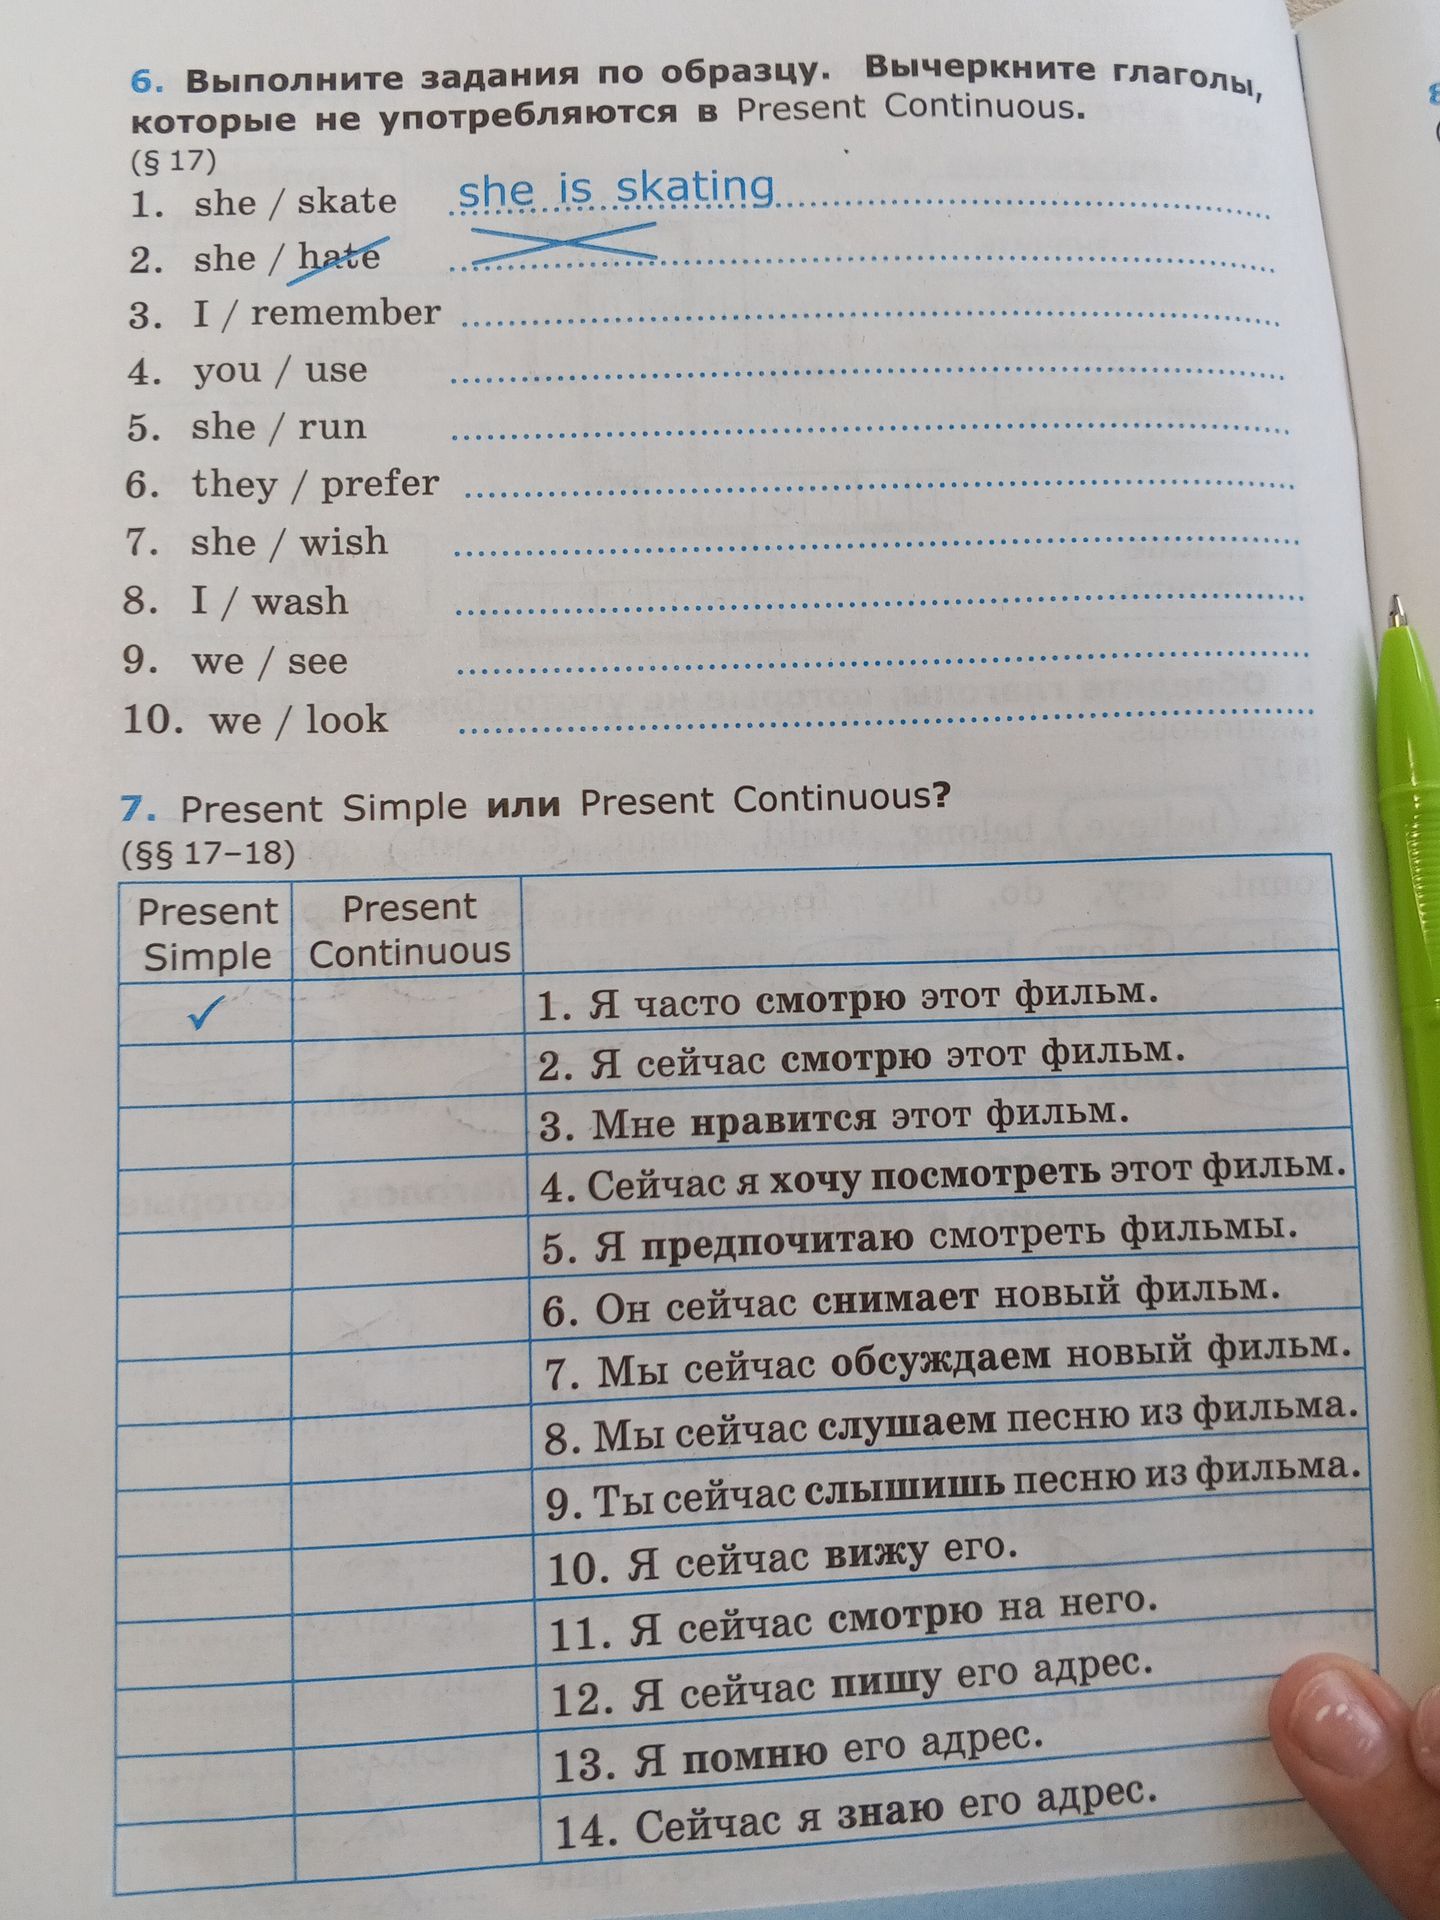 6. Выполните задания по образцу. Вычеркните глаголы,
которые не употребляются в Present Continuous.
(§ 17)
1. she / skate she is skating
2. she / hate
3. I / remember
4. you / use
5. she / run
6. they / prefer
7. she / wish
8. I / wash
9. we / see
10. we / look
7. Present Simple или Present Continuous?
(§§ 17–18)
Present Simple
Present Continuous
✓ 1. Я часто смотрю этот фильм.
2. Я сейчас смотрю этот фильм.
3. Мне нравится этот фильм.
4. Сейчас я хочу посмотреть этот фильм.
5. Я предпочитаю смотреть фильмы.
6. Он сейчас снимает новый фильм.
7. Мы сейчас обсуждаем новый фильм.
8. Мы сейчас слушаем песню из фильма.
9. Ты сейчас слышишь песню из фильма.
10. Я сейчас вижу его.
11. Я сейчас смотрю на него.
12. Я сейчас пишу его адрес.
13. Я помню его адрес.
14. Сейчас я знаю его адрес.